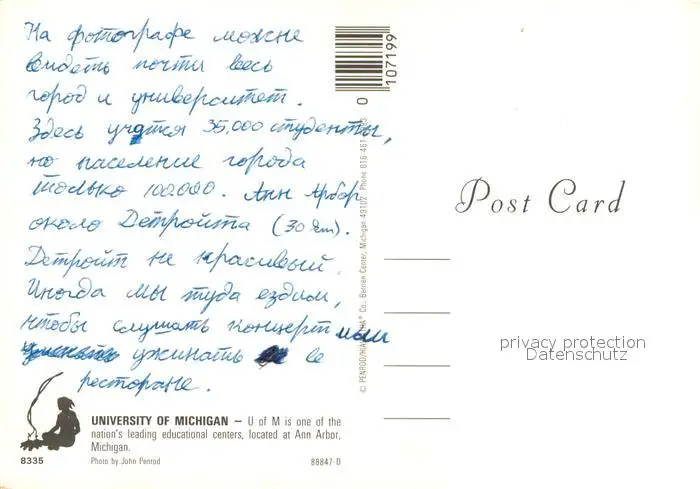 На фотографе можне
видеть почти весь
город и университет.
Здесь учатся 35,000 студенты,
но население города
только 100.000. Анн Арбор
около Детройта (30 km).
Детройт не красивый.
Иногда мы туда ездим,
чтобы слушать концерт или
ужинать в
ресторане.
UNIVERSITY OF MICHIGAN – U of M is one of the
nation's leading educational centers, located at Ann Arbor,
Michigan.
8335 Photo by John Penrod 88847-D
0 107199
Post Card
privacy protection
Datenschutz